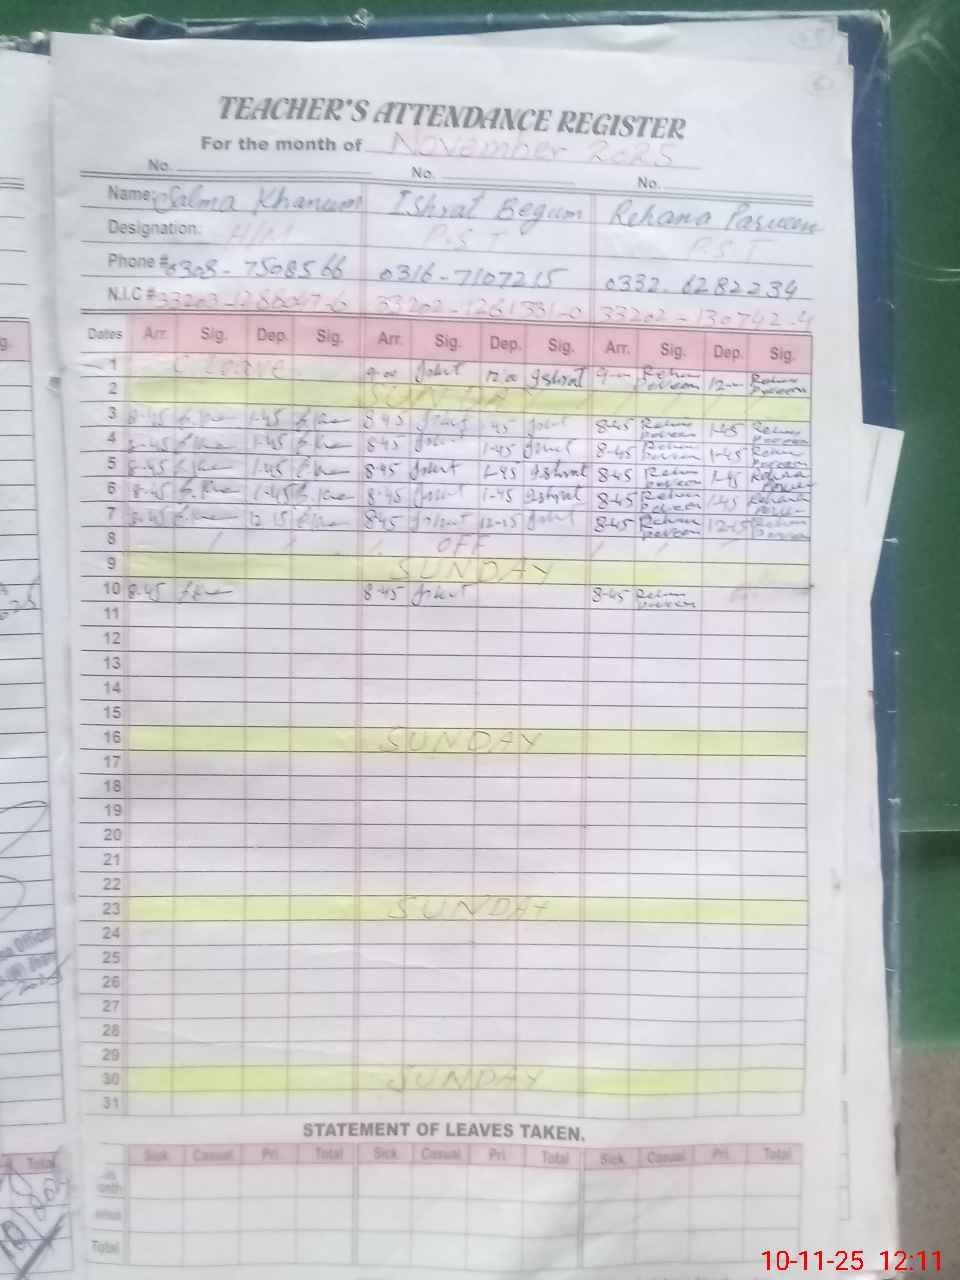 TEACHER'S ATTENDANCE REGISTER
For the month of November 2025
No. No. No.
Name: Salma Khanum Ishrat Begum Rehana Parveen
Designation: H/M P.S.T P.S.T
Phone # 0308-7508566 0316-7107215 0332-6282234
N.I.C #
Dates Arr. Sig. Dep. Sig. Arr. Sig. Dep. Sig. Arr. Sig. Dep. Sig.
1 C leave 9-00 Ishrat 12-00 Ishrat 9-00 Rehana Parveen 12-00 Rehana Parveen
2 SUNDAY
3 8-45 1-45 8-45 Ishrat 1-45 Ishrat 8-45 Rehana Parveen 1-45 Rehana Parveen
4 8-45 1-45 8-45 Ishrat 1-45 Ishrat 8-45 Rehana Parveen 1-45 Rehana Parveen
5 8-45 1-45 8-45 Ishrat 1-45 Ishrat 8-45 Rehana Parveen 1-45 Rehana Parveen
6 8-45 1-45 8-45 Ishrat 1-45 Ishrat 8-45 Rehana Parveen 1-45 Rehana Parveen
7 8-45 12-15 8-45 Ishrat 12-15 Ishrat 8-45 Rehana Parveen 12-15 Rehana Parveen
8 OFF
9 SUNDAY
10 8-45 8-45 Ishrat 8-45 Rehana Parveen
11
12
13
14
15
16 SUNDAY
17
18
19
20
21
22
23 SUNDAY
24
25
26
27
28
29
30 SUNDAY
31
STATEMENT OF LEAVES TAKEN.
Sick Casual Pri. Total Sick Casual Pri. Total Sick Casual Pri. Total
Total
10-11-25 12:11